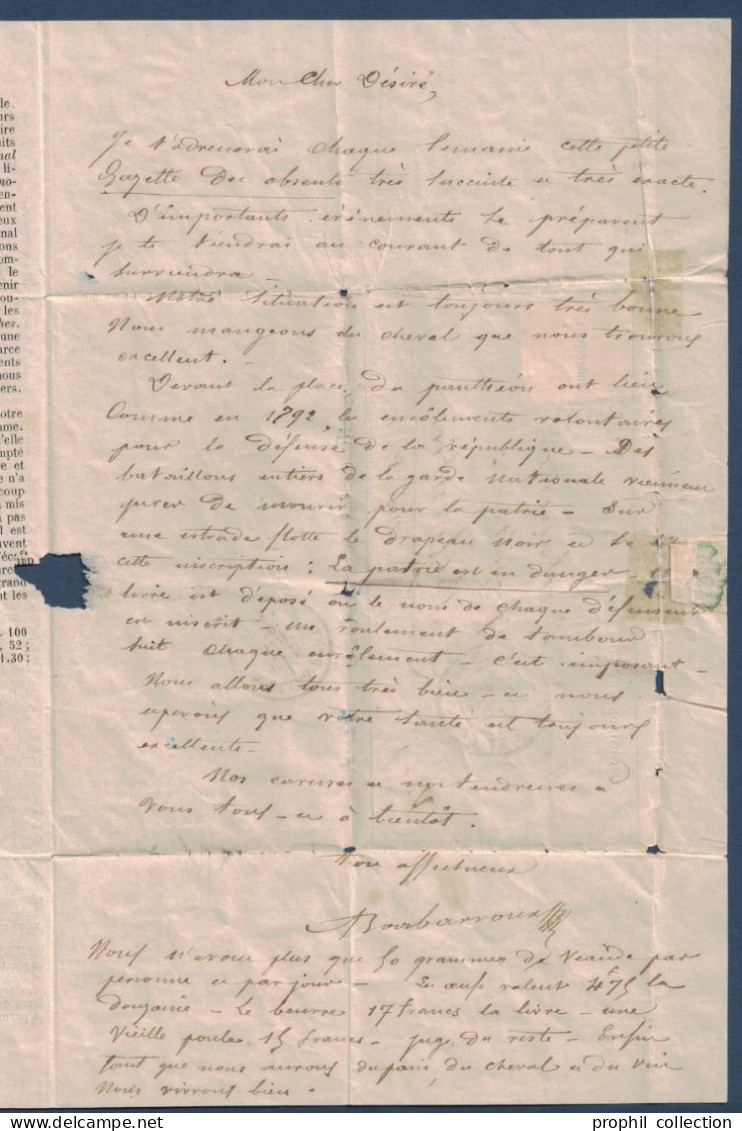 le.
urs
ire
uits
nal
li-
no-
en-
ent
eux
nal
ons
om-
le
enir
ou-
les
ches.
une
arce
ents
nous
ers.
otre
me.
'elle
mpté
re et
e n'a
coup
mis
pas
l est
uvent
'écri
arce
grand
nt les
. 100
, 52;
1.30;
Mon Cher Désiré,
Je t'adresserai chaque semaine cette petite
Gazette des absents très succinte et très exacte.
D'importants évènements se préparent
je te tiendrai au courant de tout qui
surviendra
Notre situation est toujours très bonne
Nous mangeons du cheval que nous trouvons
excellent. -
Devant la place du panthéon ont lieu
Comme en 1792 les enrôlements volontaires
pour la défense de la république - Des
bataillons entiers de la garde nationale viennent
jurer de mourir pour la patrie - Sur
une estrade flotte le drapeau noir et
cette inscription : La patrie est en danger -
livre est déposé où le nom de chaque défenseur
est inscrit - un roulement de tambour
suit chaque enrôlement - C'est imposant -
Nous allons tous très bien - et nous
espérons que votre santé est toujours
excellente -
Nos caresses et nos tendresses à
Vous tous - et à bientôt.
Ton affectueux
Barbarroux
Nous n'avons plus que 50 grammes de viande par
personne et par jour - Les œufs valent 4f75 la
douzaine - Le beurre 17 francs la livre - une
Vieille poule 15 francs - juge du reste - Enfin
tant que nous aurons du pain, du cheval et du vin
Nous vivrons bien.
prophil collection